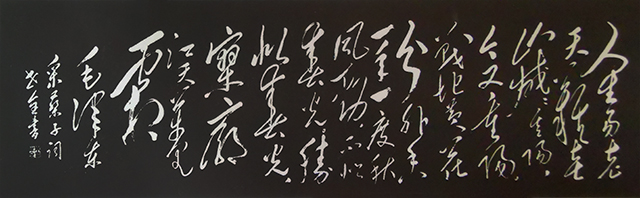 人生易老
天难老
岁岁重阳
今又重阳
战地黄花
分外香
一年一度秋
风劲不似
春光胜
似春光
寥廓
江天万里
霜
毛泽东
采桑子词